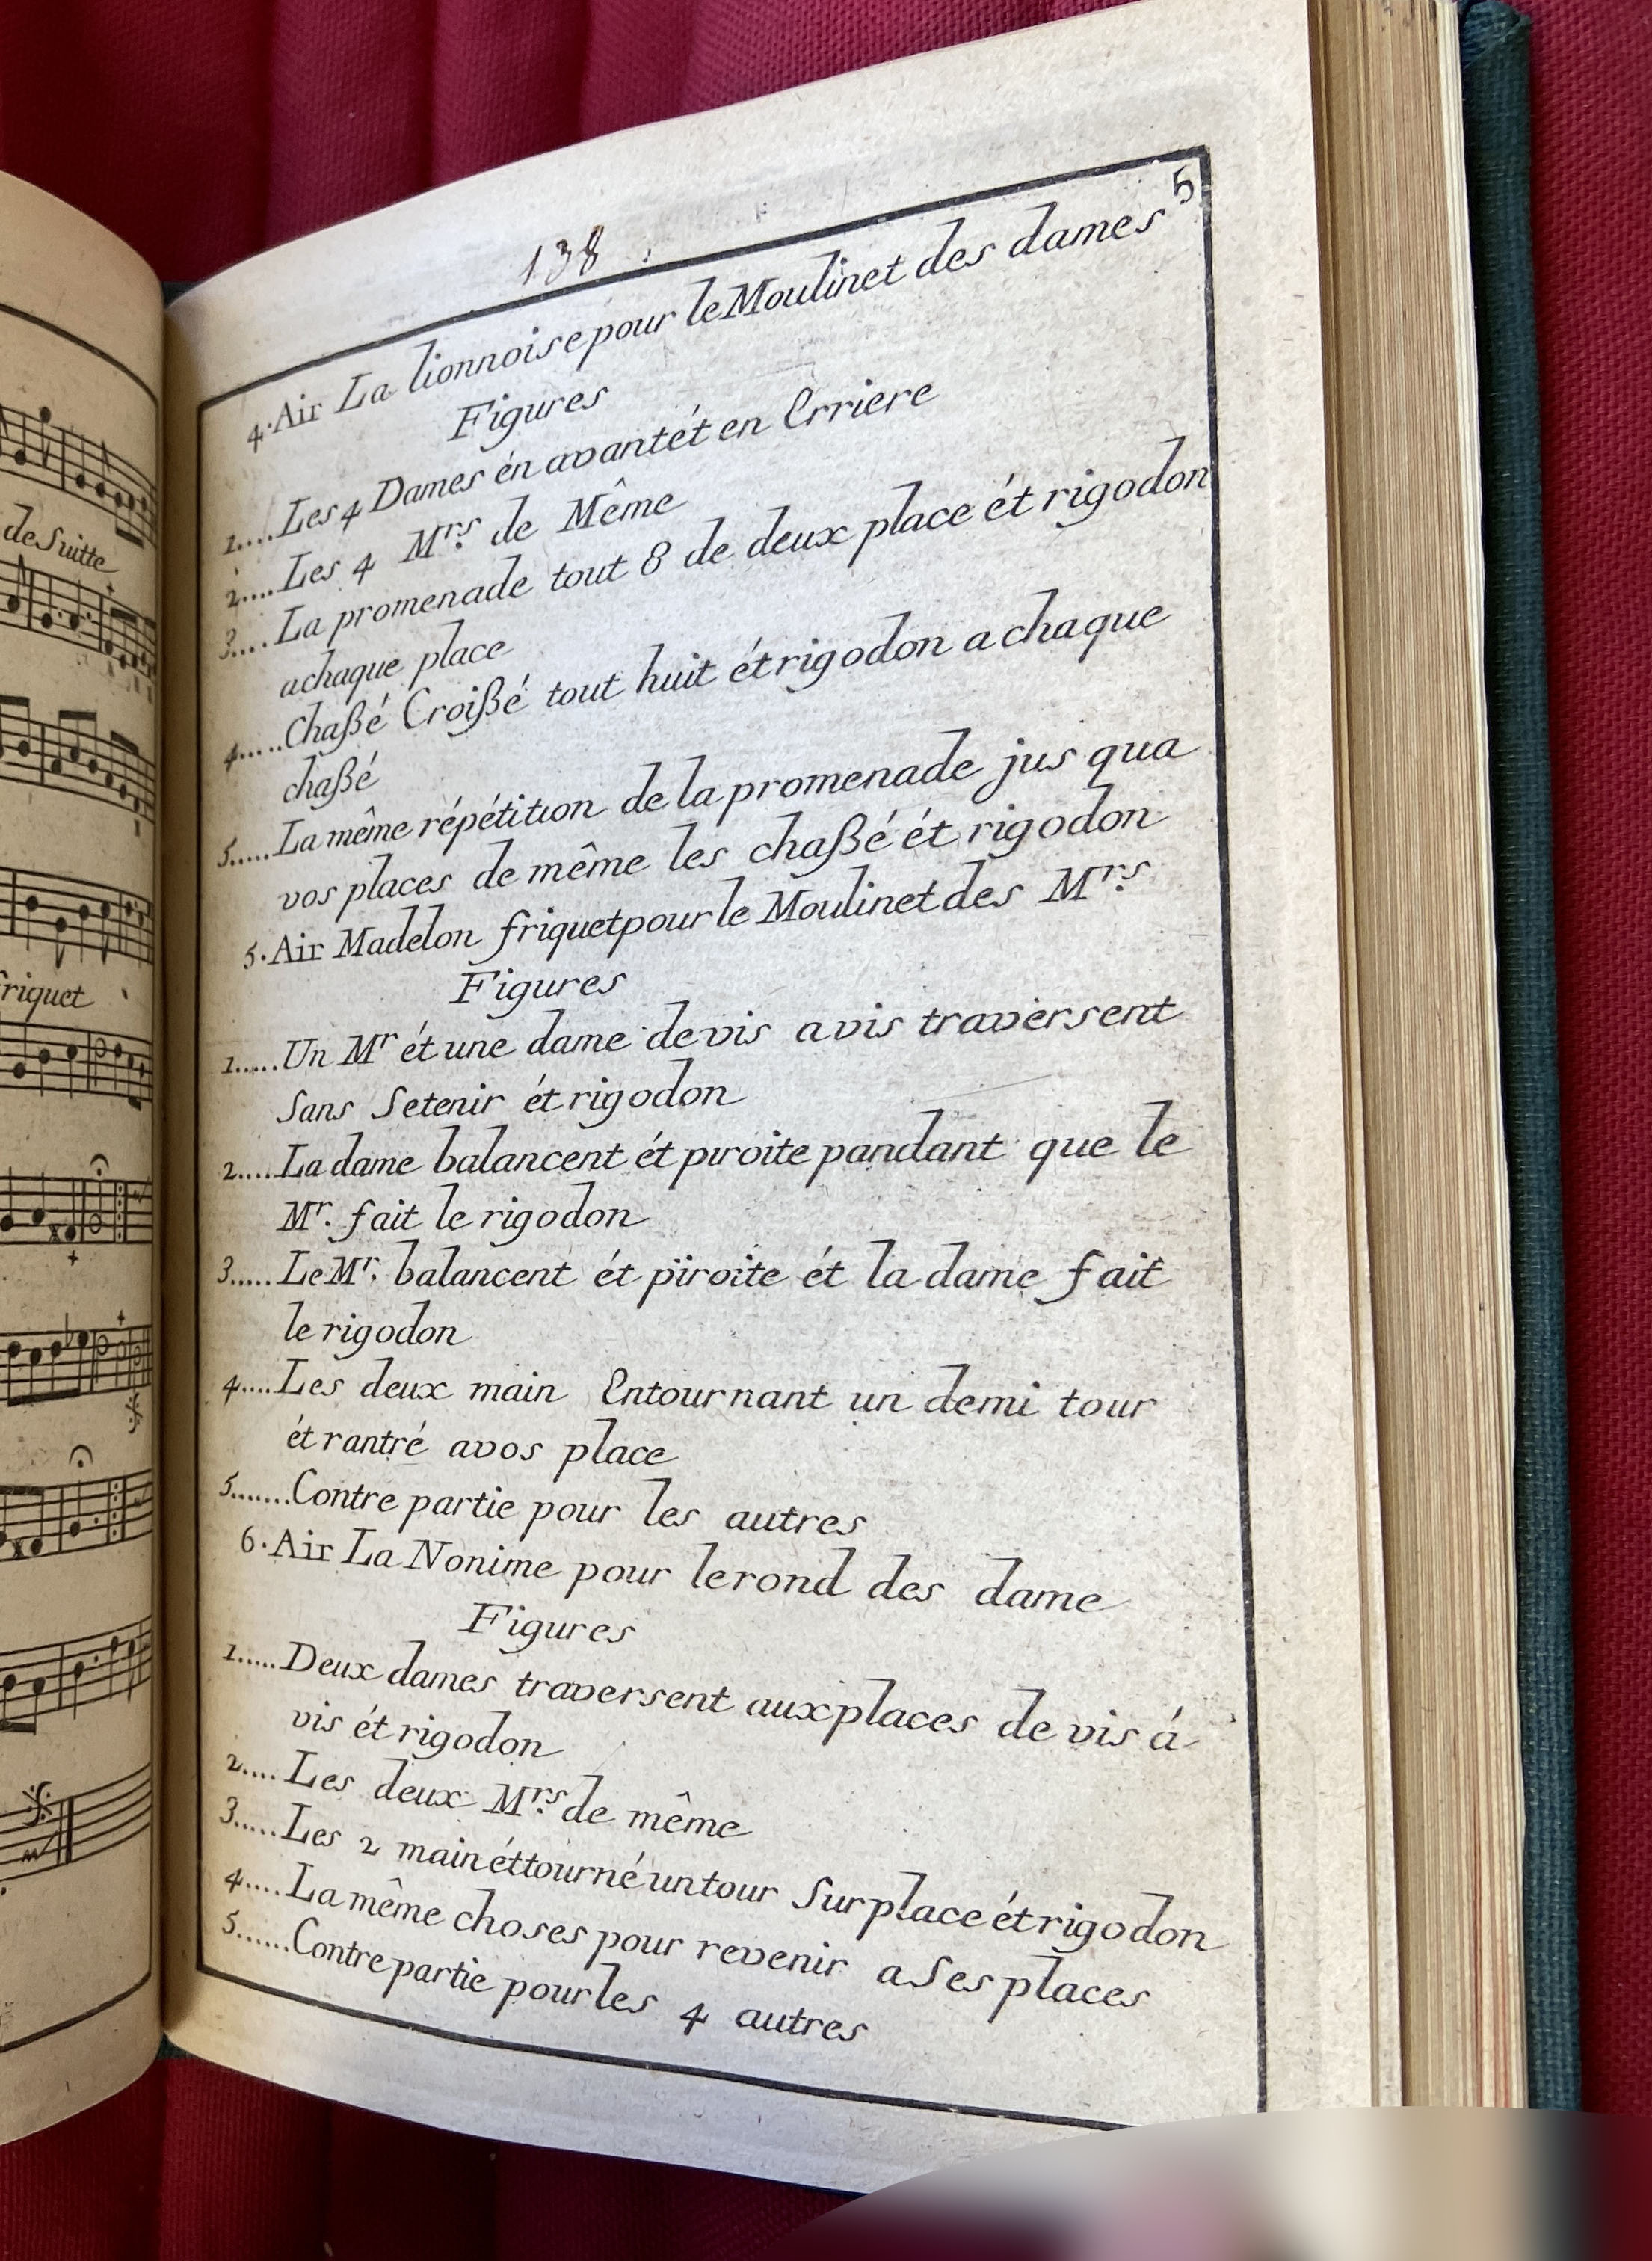 de Suitte
riquet
138
5
4. Air La lionnoise pour le Moulinet des dames
Figures
1.... Les 4 Dames én avant ét en Erriere
2.... Les 4 Mrs. de Même
3.... La promenade tout 8 de deux place ét rigodon
achaque place
4..... chaßé Croißé tout huit ét rigodon achaque
chaßé
5..... La même répétition de la promenade jus qua
vos places de même les chaßé ét rigodon
5. Air Madelon friquet pour le Moulinet des Mrs.
Figures
1..... Un Mr ét une dame de vis avis traversent
Sans Setenir ét rigodon
2.... La dame balancent ét piroite pandant que le
Mr. fait le rigodon
3..... Le Mr. balancent ét piroite ét la dame fait
le rigodon
4.... Les deux main Entournant un demi tour
ét rantré avos place
5....... Contre partie pour les autres
6. Air La Nonime pour le rond des dame
Figures
1..... Deux dames traversent aux places de vis á
vis ét rigodon
2.... Les deux Mrs. de même
3..... Les 2 main ét tourné un tour Sur place ét rigodon
4.... La même choses pour revenir a Ses places
5...... Contre partie pour les 4 autres